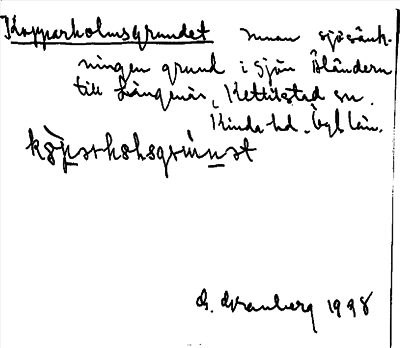 Kopparholmsgrundet innan sjösänk-
ningen grund i sjön Ålåndern
till Långenäs, Kettilstad sn.
Kinda hd. Ögl län.
kòparhohsgrúnət
G. Granberg 1998